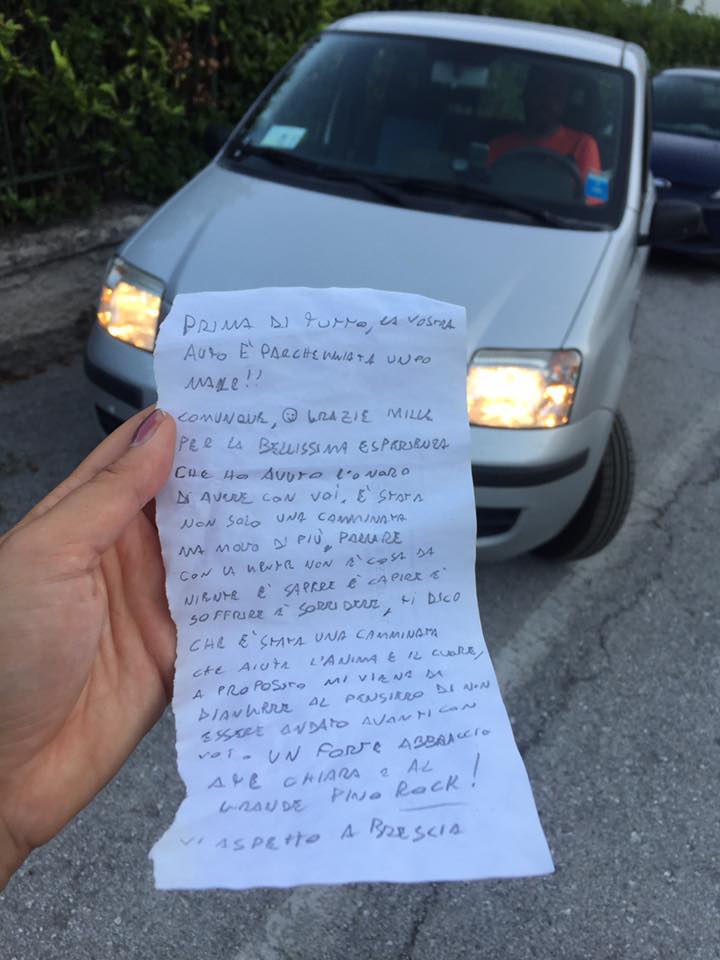 PRIMA DI TUTTO, LA VOSTRA
AUTO È PARCHEGGIATA UN PO
MALE!!
COMUNQUE, ☺ GRAZIE MILLE
PER LA BELLISSIMA ESPERIENZA
CHE HO AVUTO L'ONARO
DI AVERE CON VOI. È STATA
NON SOLO UNA CAMMINATA
MA MOLTO DI PIÙ, PARLARE
CON LA GENTE NON È COSA DA
NIENTE È SAPERE È CAPIRE È
SOFFRIRE È SORRIDERE, TI DICO
CHE È STATA UNA CAMMINATA
CHE AIUTA L'ANIMA E IL CUORE,
A PROPOSITO MI VIENE DA
PIANGERE AL PENSIERO DI NON
ESSERE ANDATO AVANTI CON
VOI. UN FORTE ABBRACCIO
A TE CHIARA E AL
GRANDE PINO ROCK!
VI ASPETTO A BRESCIA